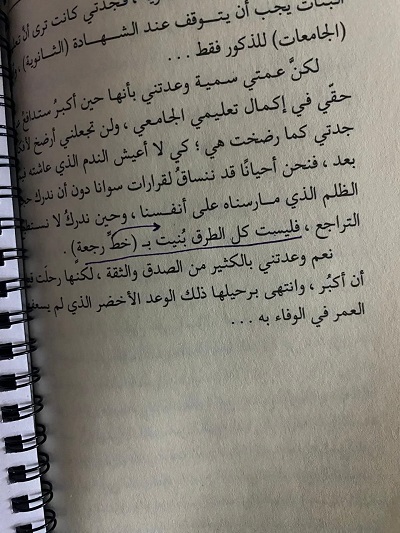 البنات يجب أن يتوقف عند الشهادة (الثانوية) ،
(الجامعات) للذكور فقط ...
لكنَّ عمتي سمية وعدتني بأنها حين أكبرُ ستدافع
حقّي في إكمال تعليمي الجامعي ، ولن تجعلني أرضخ
جدتي كما رضخت هي ؛ كي لا أعيش الندم الذي عاشته
بعد ، فنحن أحيانًا قد ننساقُ لقرارات سوانا دون أن ندرك
الظلم الذي مارسناه على أنفسنا ، وحين ندركُ لا
التراجع ، فليست كل الطرق بُنيت بـ (خطِّ رجعةٍ) .
نعم وعدتني بالكثير من الصدق والثقة ، لكنها رحلَت
أن أكبُر ، وانتهى برحيلها ذلك الوعد الأخضر الذي لم
العمر في الوفاء به ...